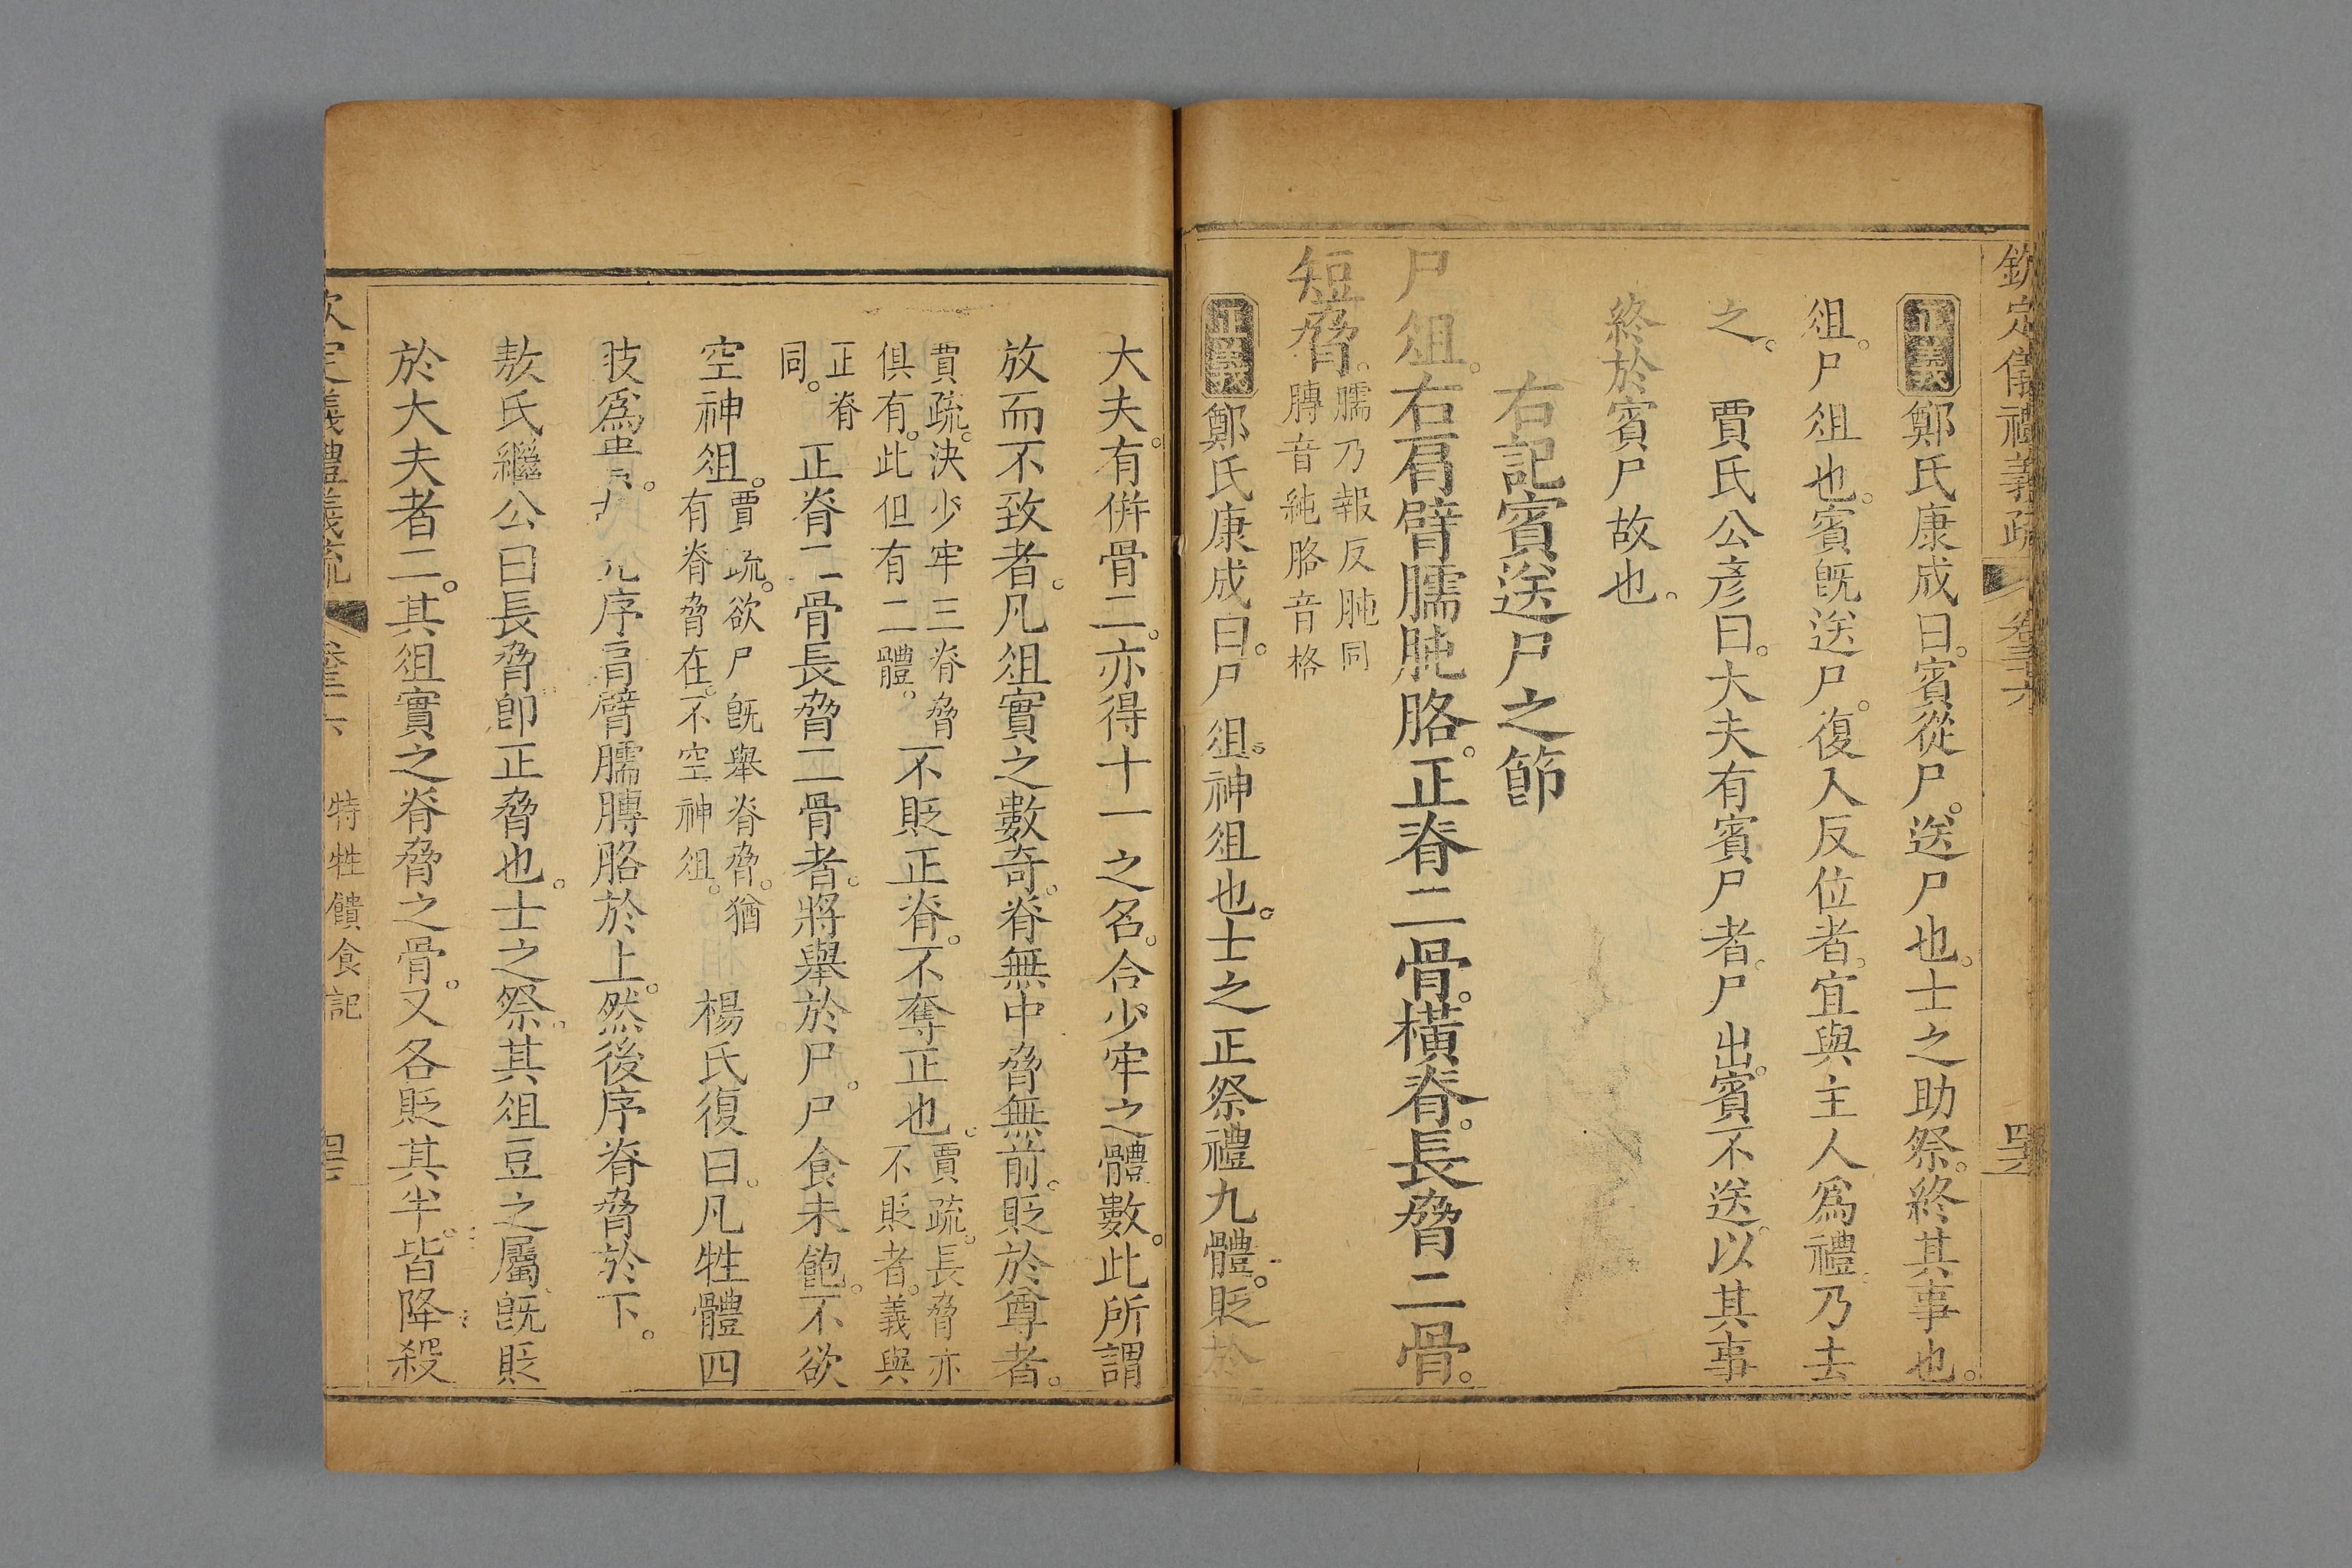 欽定儀禮義疏 卷三十六
正義鄭氏康成曰。賓從尸。送尸也。士之助祭。終其事也。
俎。尸俎也。賓旣送尸。復入反位者。宜與主人爲禮。乃去
之。 賈氏公彥曰。大夫有賓尸者。尸出。賓不送。以其事
終於賓尸故也。
右記賓送尸之節
尸俎。右肩臂臑肫胳。正脊二骨。橫脊。長脅二骨。
短脅。臑乃報反肫同
膞音純胳音格
正義鄭氏康成曰。尸俎。神俎也。士之正祭禮九體。貶於
大夫。有併骨二。亦得十一之名。合少牢之體數。此所謂
放而不致者。凡俎實之數奇。脊無中脅無前。貶於尊者。
賈疏。決少牢三脊脅
俱有。此但有二體。
不貶正脊。不奪正也。
賈疏。長脅亦
不貶者。義與
正脊
同。
正脊二骨長脅二骨者。將舉於尸。尸食未飽。不欲
空神俎。
賈疏。欲尸旣舉脊脅。猶
有脊脅在。不空神俎。
楊氏復曰。凡牲體四
肢爲 序肩臂臑膞胳於上。然後序脊脅於下。
敖氏繼公曰長脅卽正脅也。士之祭。其俎豆之屬旣貶
於大夫者二。其俎實之脊脅之骨。又各貶其半。皆降殺
特牲饋食記